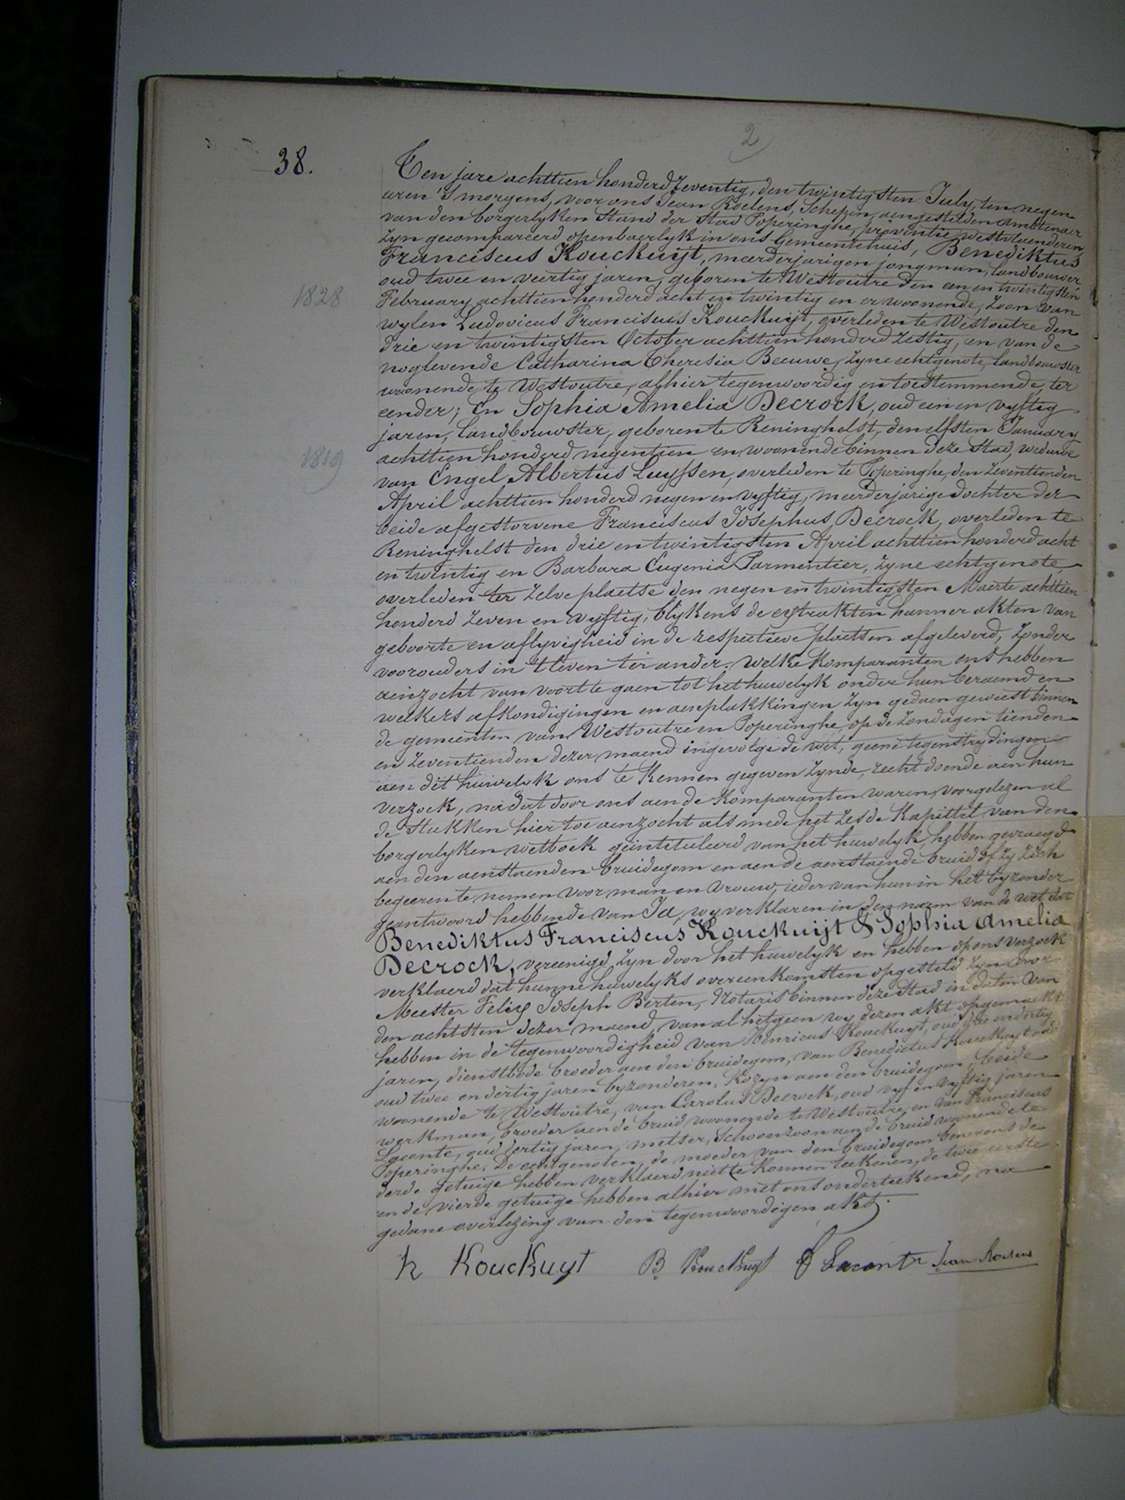 2
38.
Ten jare achttien honderd zeventig, den twintigsten July, ten negen
uren 's morgens, voor ons Jean Roelens, Schepen, aengestelden Ambtenaer
van den borgerlyken Stand der Stad Poperinghe, provintie westvlaenderen,
zyn gecompareerd openbaerlyk in ons Gemeentehuis, Benediktus
Franciscus Kouckuijt, meerderjarigen jongman, landbouwer,
oud twee en veertig jaren, geboren te Westoutre den een en twintigsten
1828
February achttien honderd acht en twintig en er woonende, zoon van
wylen Ludovicus Franciscus Kouckuijt, overleden te Westoutre den
drie en twintigsten October achttien honderd zestig, en van de
noglevende Catharina Theresia Beeuwe, zyne echtgenote, landbouwster
woonende te Westoutre, alhier tegenwoordig en toestemmende, ter
eender; En Sophia Amelia Decrock, oud een en vyftig
jaren, landbouwster, geboren te Reninghelst, den elfsten January
1819
achttien honderd negentien en woonende binnen deze Stad, weduwe
van Engel Albertus Luyssen, overleden te Poperinghe, den zeventienden
April achttien honderd negen en vyftig, meerderjarige dochter der
beide afgestorvene Franciscus Josephus Decrock, overleden te
Reninghelst den drie en twintigsten April achttien honderd acht
en twintig en Barbara Eugenia Parmentier, zyne echtgenote,
overleden ter zelve plaetse den negen en twintigsten Maerte achttien
honderd zeven en vyftig, blykens de extrakten hunner akten van
geboorte en aflyvigheid in de respectieve plaetsen afgeleverd, zonder
voorouders in 't leven ter ander. Welke komparanten ons hebben
aenzocht van voort te gaen tot het huwelyk onder hun beraemd en
welkers afkondigingen en aenplakkingen zyn gedaen geweest binnen
de gemeenten van Westoutre en Poperinghe, op de zondagen tienden
en zeventienden dezer maend ingevolge de wet, geene tegenstrydingen
aen dit huwelyk ons te kennen gegeven zynde, recht doende aen hun
verzoek, nadat door ons aen de komparanten waren voorgelezen al
de Stukken hier toe aenzocht als mede het zesde kapittel van den
borgerlyken wetboek geintituleerd van het huwelyk, hebben gevraegd
aen den aenstaenden bruidegom en aen de aenstaende bruid of zy zich
begeeren te nemen voor man en vrouw, ieder van hun in het byzonder
geantwoord hebbende van Ja, wy verklaren in den naem van de wet dat
Benediktus Franciscus Kouckuijt & Sophia Amelia
Decrock, vereenigd zyn door het huwelyk en hebben op ons verzoek
verklaerd dat hunne huwelyks overeenkomsten opgesteld zyn voor
Meester Felix Joseph Berten, Notaris binnen deze Stad in daten van
den achtsten dezer maend, van al hetgeen wy dezen akt opgemaekt
hebben in de tegenwoordigheid van Henricus Kouckuyt, oud dertig
jaren, dienstbode broeder aen den bruidegom, van Benedictus Kouckuyt
oud twee en dertig jaren byzonderen, kozyn aen den bruidegom beide
woonende te Westoutre, van Carolus Decrock, oud vyf en vyftig jaren
werkman, broeder aen de bruid, woonende te Westoutre, en van Franciscus
Laconte, oud dertig jaren, metser, Schoonzoon aen de bruid woonende te
Poperinghe. De echtgenoten, de moeder van den bruidegom benevens de
derde getuige hebben verklaerd niet te konnen teekenen, de twee eerste
en de vierde getuige hebben alhier met ons onderteekend, na
gedane overlezing van den tegenwoordigen akt.
h KoucKuyt B Kouckuyt F Laconte Jean Roelens